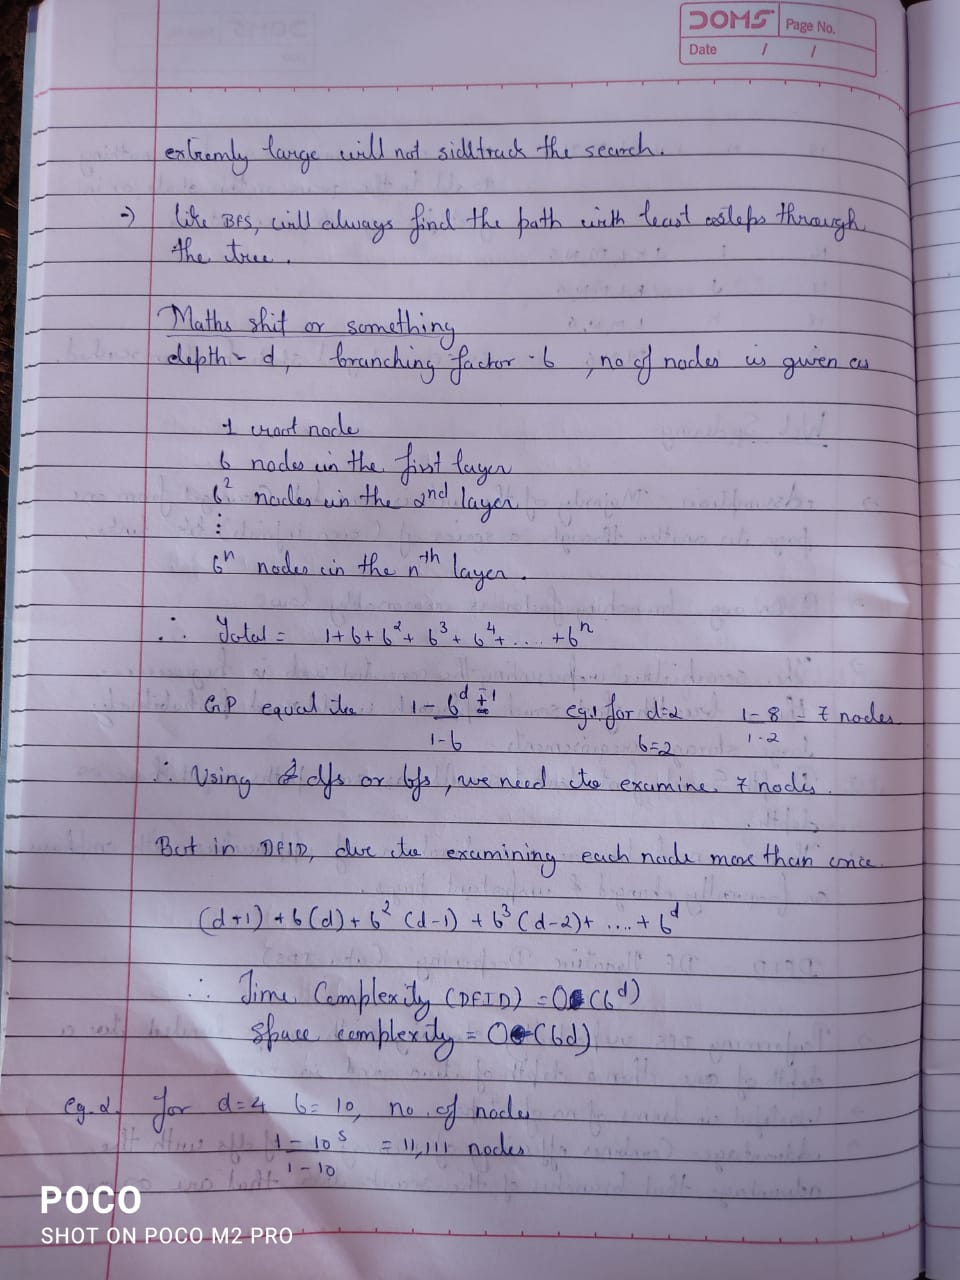 DOMS Page No.
Date / /
extremly large will not sidetrack the search.
→ like BFS, will always find the path with least steps through
the tree.
Maths shit or something
depth - d, branching factor - b, no of nodes is given as
1 root node
b nodes in the first layer
b² nodes in the 2nd layer
⋮
bⁿ nodes in the nᵗʰ layer.
∴ Total = 1+b+b²+b³+b⁴+....+bⁿ
GP equal to (1-b^(d+1))/(1-b) eg.1 for d=2 b=2 (1-8)/(1-2) - 7 nodes
∴ Using dfs or bfs, we need to examine 7 nodes.
But in DFID, due to examining each node more than once
(d+1)+b(d)+b²(d-1)+b³(d-2)+....+b^d
∴ Time Complexity (DFID) = O(b^d)
Space complexity = O(bd)
eg.2. for d=4 b=10, no. of node
(1-10⁵)/(1-10) = 11,111 nodes
POCO
SHOT ON POCO M2 PRO